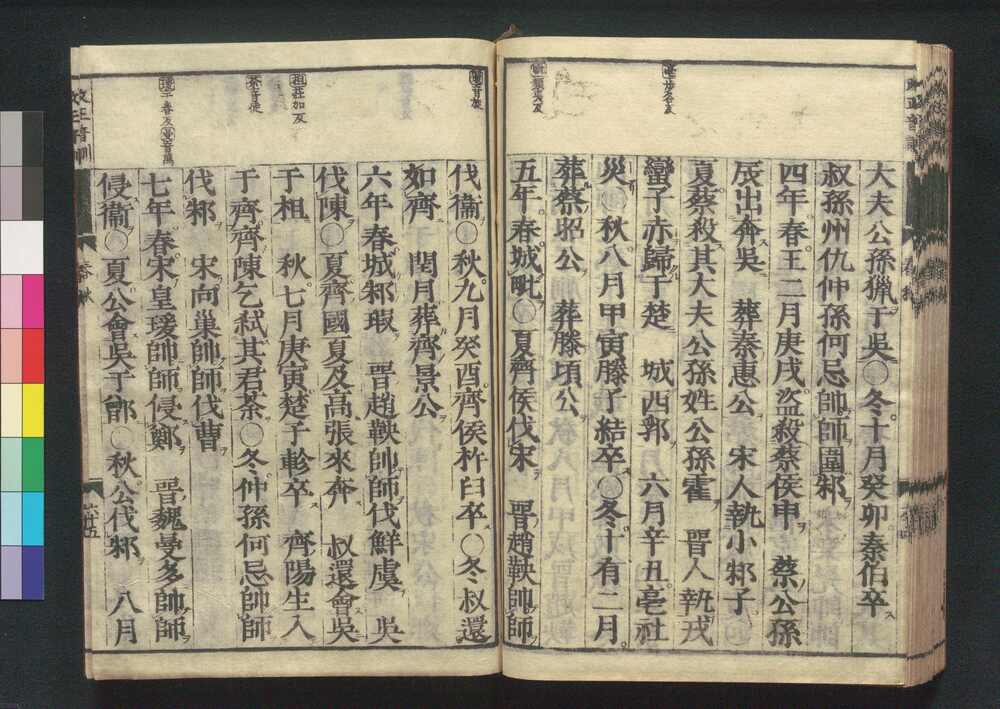 亳步各反
大夫公孫獵于吳○冬十月癸卯秦伯卒
叔孫州仇仲孫何忌帥師圍邾
四年春王二月庚戌盗殺蔡侯申　蔡公孫
辰出奔吳　葬秦惠公　宋人執小邾子
夏蔡殺其大夫公孫姓公孫霍　晉人執戎
蠻子赤歸于楚　城西郛　六月辛丑亳社
災○秋八月甲寅滕子結卒○冬十有二月
葬蔡昭公　葬滕頃公
五年春城毗○夏齊侯伐宋　晉趙鞅帥師
還音旋
柤莊加反
瑗于眷反曼音萬
伐衞○秋九月癸酉齊侯杵臼卒○冬叔還
如齊　閏月葬齊景公
六年春城邾瑕　晉趙鞅帥師伐鮮虞　吳
伐陳○夏齊國夏及高張來奔　叔還會吳
于柤　秋七月庚寅楚子軫卒　齊陽生入
于齊齊陳乞弒其君荼○冬仲孫何忌帥師
伐邾　宋向巢帥師伐曹
七年春宋皇瑗帥師侵鄭　晉魏曼多帥師
侵衞○夏公會吳于鄫○秋公伐邾　八月
改正音訓
春秋
六十五